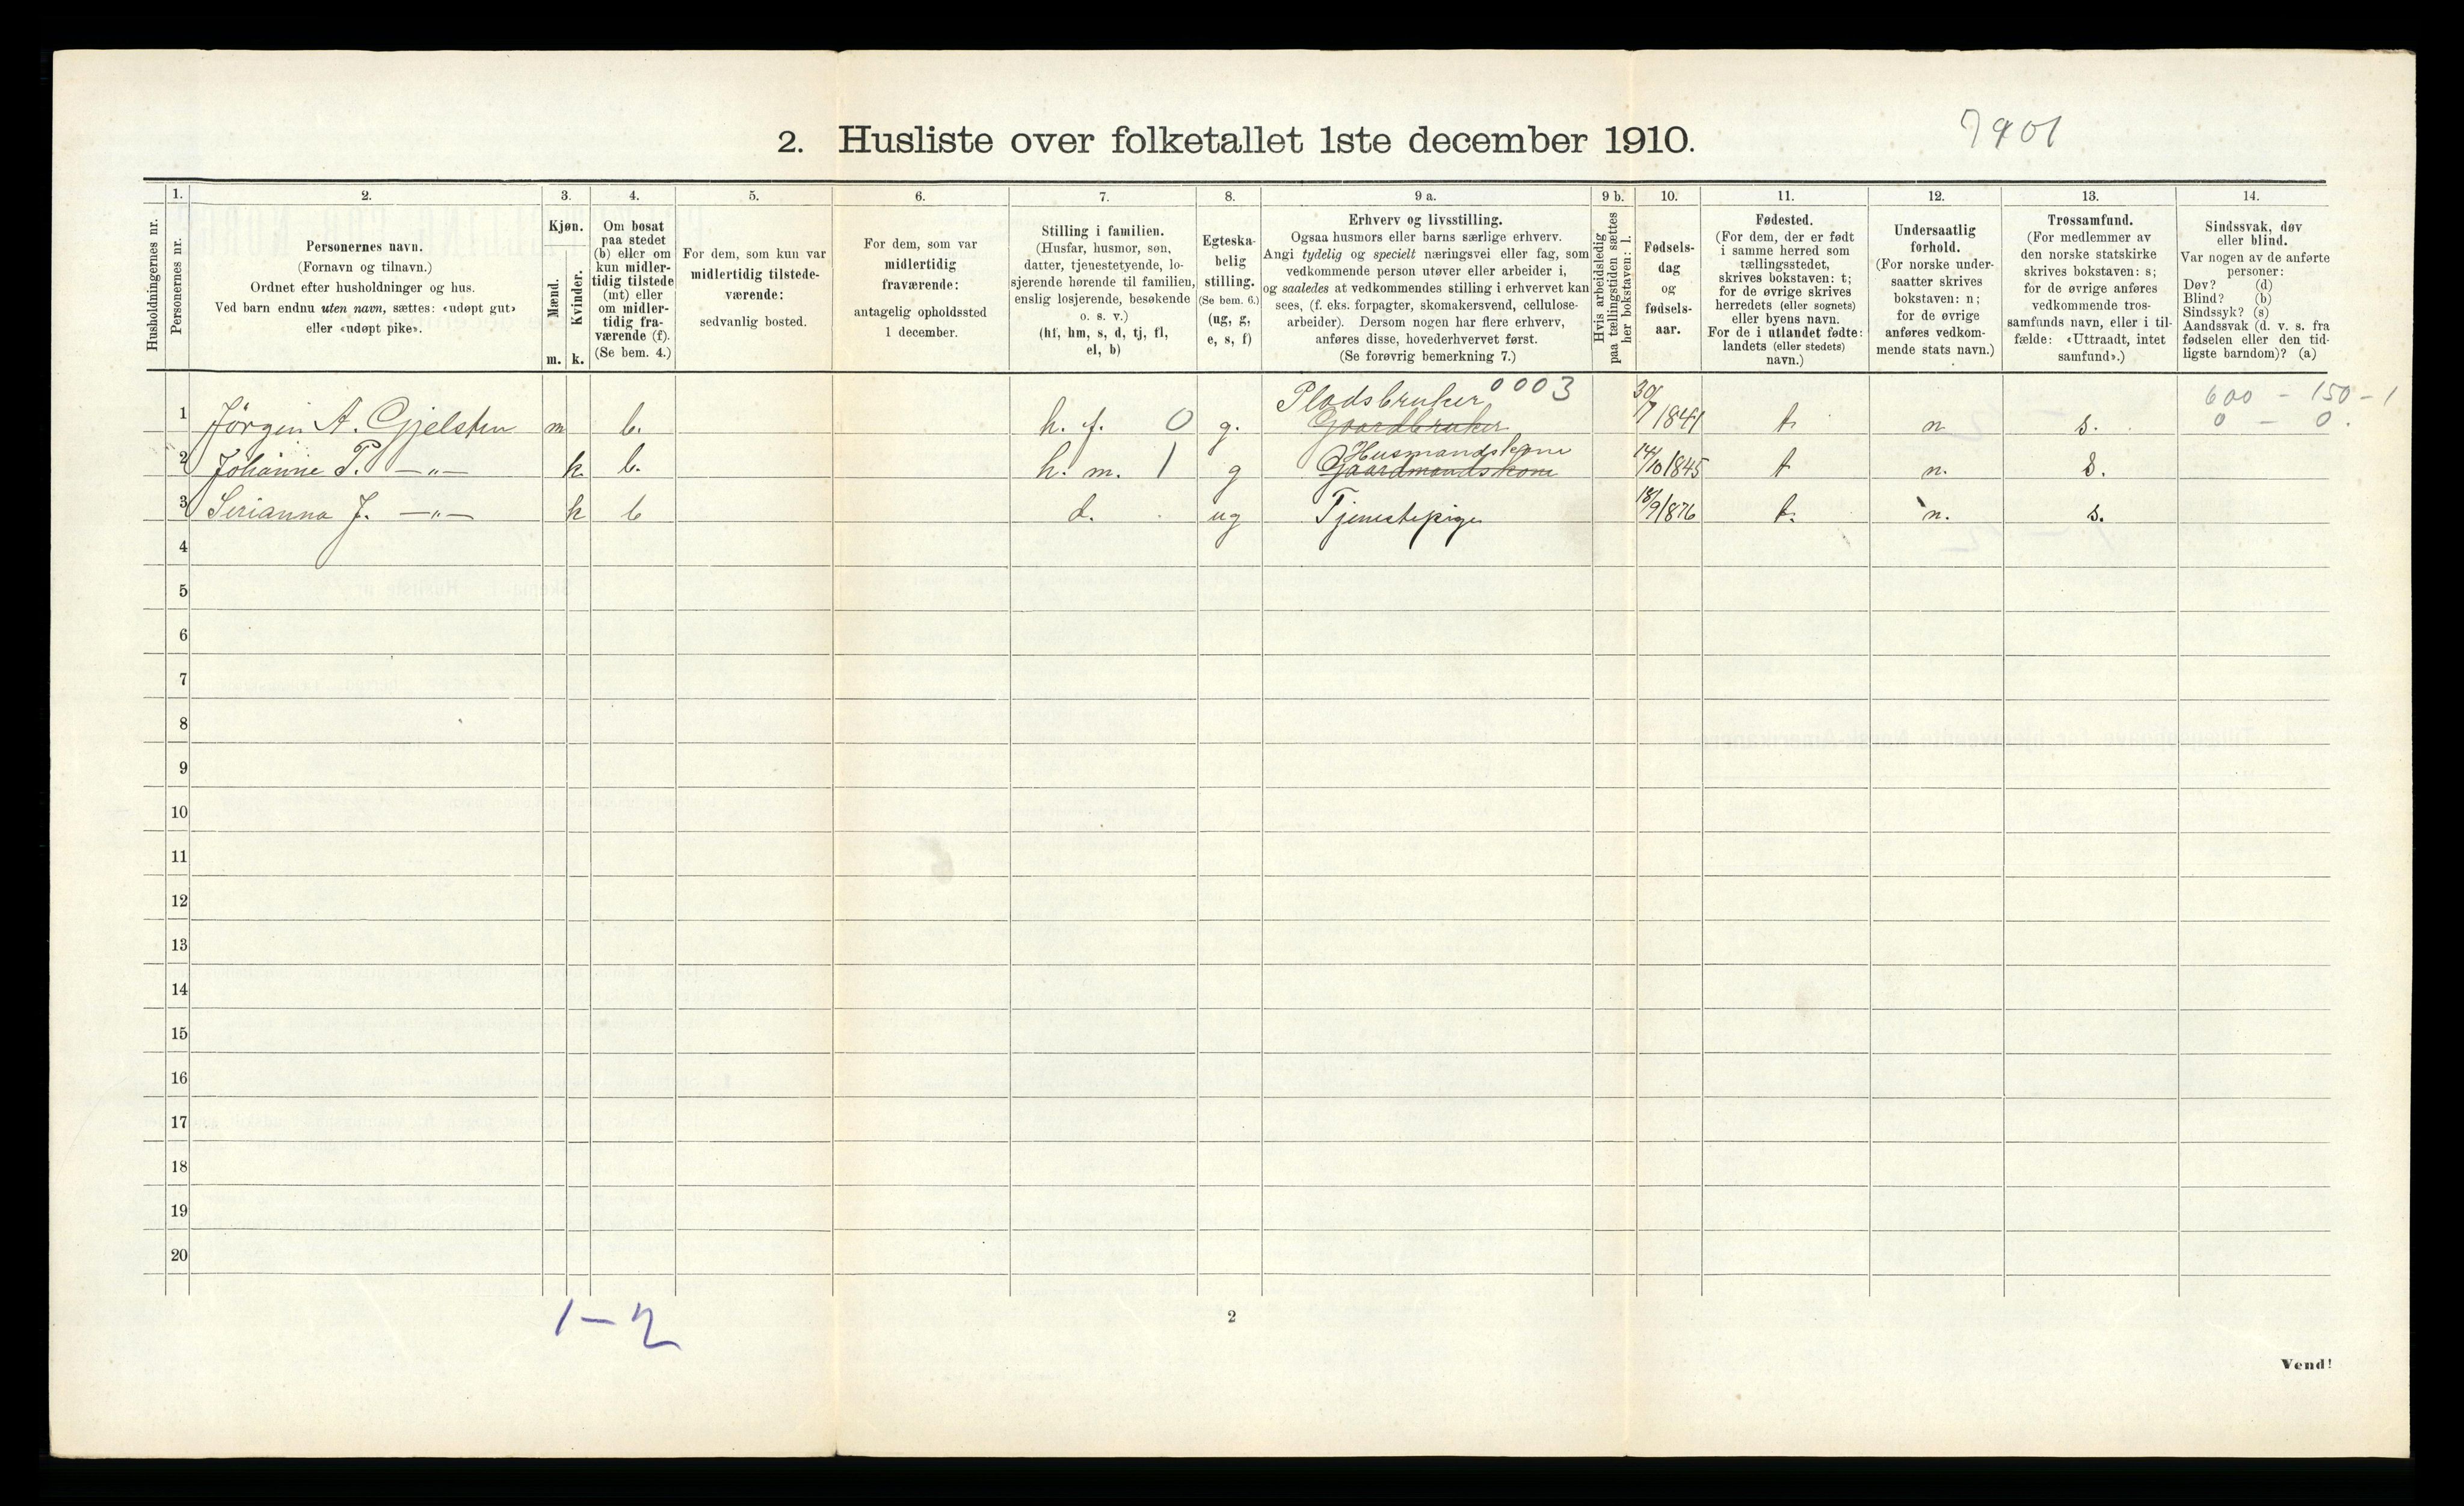 7901
2. Husliste over folketallet 1ste december 1910.
Husholdningernes nr.
1.
Personernes nr.
2.
Personernes navn.
(Fornavn og tilnavn.)
Ordnet efter husholdninger og hus.
Ved barn endnu uten navn, sættes: «udøpt gut»
eller «udøpt pike».
3.
Kjøn.
Mænd.
Kvinder.
m. k.
4.
Om bosat
paa stedet
(b) eller om
kun midler-
tidig tilstede
(mt) eller
om midler-
tidig fra-
værende (f).
(Se bem. 4.)
5.
For dem, som kun var
midlertidig tilstede-
værende:
sedvanlig bosted.
6.
For dem, som var
midlertidig
fraværende:
antagelig opholdssted
1 december.
7.
Stilling i familien.
(Husfar, husmor, søn,
datter, tjenestetyende, lo-
sjerende hørende til familien,
enslig losjerende, besøkende
o. s. v.)
(hf, hm, s, d, tj, fl,
el, b)
8.
Egteska-
belig
stilling.
(Se bem. 6.)
(ug, g,
e, s, f)
9 a.
Erhverv og livsstilling.
Ogsaa husmors eller barns særlige erhverv.
Angi tydelig og specielt næringsvei eller fag, som
vedkommende person utøver eller arbeider i,
og saaledes at vedkommendes stilling i erhvervet kan
sees, (f. eks. forpagter, skomakersvend, cellulose-
arbeider). Dersom nogen har flere erhverv,
anføres disse, hovederhvervet først.
(Se forøvrig bemerkning 7.)
9 b.
Hvis arbeidsledig
paa tællingstiden sættes
her bokstaven: l.
10.
Fødsels-
dag
og
fødsels-
aar.
11.
Fødested.
(For dem, der er født
i samme herred som
tællingsstedet,
skrives bokstaven: t;
for de øvrige skrives
herredets (eller sognets)
eller byens navn.
For de i utlandet fødte:
landets (eller stedets)
navn.)
12.
Undersaatlig
forhold.
(For norske under-
saatter skrives
bokstaven: n;
for de øvrige
anføres vedkom-
mende stats navn.)
13.
Trossamfund.
(For medlemmer av
den norske statskirke
skrives bokstaven: s;
for de øvrige anføres
vedkommende tros-
samfunds navn, eller i til-
fælde: «Uttraadt, intet
samfund».)
14.
Sindssvak, døv
eller blind.
Var nogen av de anførte
personer:
Døv? (d)
Blind? (b)
Sindssyk? (s)
Aandssvak (d. v. s. fra
fødselen eller den tid-
ligste barndom)? (a)
Pladsbruker 0003 30/ 600 - 150 - 1
1 Jörgen A. Gjelsten m b. h. f. 0 g. Gaardbruker 7 1841 t. n s. 0 - 0.
Husmandskone
2 Johanne P. —"— k. b. h. m. 1 g Gaardmandskone 14/10 1845 t n. s.
3 Serianna J. —"— k b d. ug Tjenestepige 18/9 1876 t. n. s.
4
5
6
7
8
9
10
11
12
13
14
15
16
17
18
19
20
1-2
2
Vend!